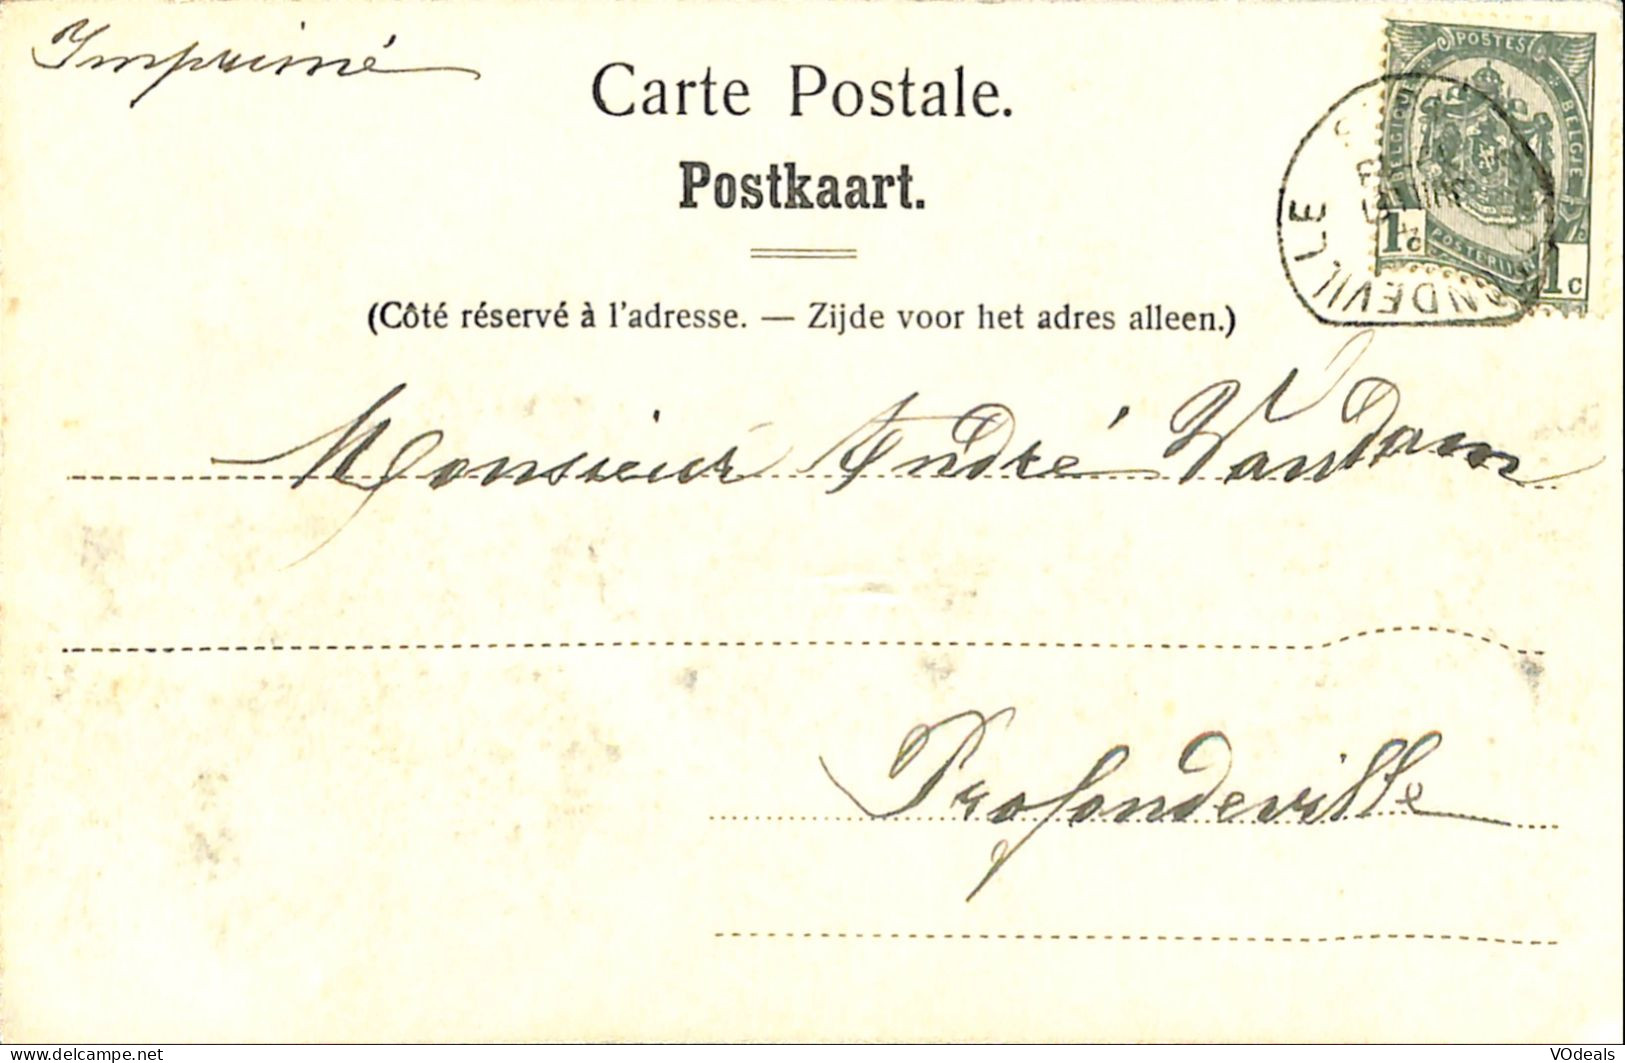 Imprimé
Carte Postale.
Postkaart.
(Côté réservé à l'adresse. — Zijde voor het adres alleen.)
POSTES
BELGIQUE
BELGIE
POSTERIJEN
1c
1c
NDEVILLE
Monsieur André Vandam
Profondeville
Website : https://www.delcampe.net - Category :
VOdeals